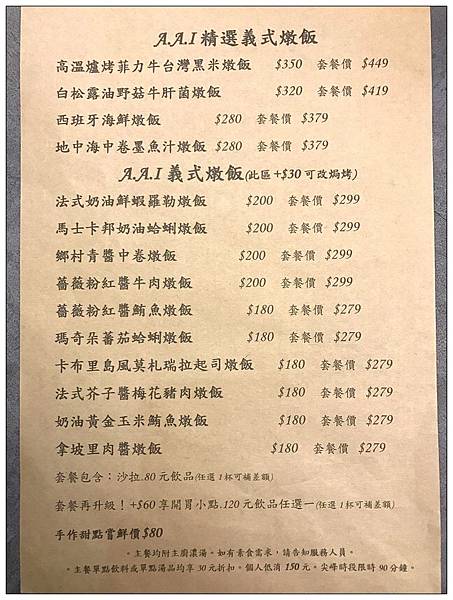 A.A.I 精選義式燉飯
高溫爐烤菲力牛台灣黑米燉飯 $350 套餐價 $449
白松露油野菇牛肝菌燉飯 $320 套餐價 $419
西班牙海鮮燉飯 $280 套餐價 $379
地中海中卷墨魚汁燉飯 $280 套餐價 $379
A.A.I 義式燉飯(此區+$30可改焗烤)
法式奶油鮮蝦羅勒燉飯 $200 套餐價 $299
馬士卡邦奶油蛤蜊燉飯 $200 套餐價 $299
鄉村青醬中卷燉飯 $200 套餐價 $299
薔薇粉紅醬牛肉燉飯 $200 套餐價 $299
薔薇粉紅醬鮪魚燉飯 $180 套餐價 $279
瑪奇朵蕃茄蛤蜊燉飯 $180 套餐價 $279
卡布里島風莫札瑞拉起司燉飯 $180 套餐價 $279
法式芥子醬梅花豬肉燉飯 $180 套餐價 $279
奶油黃金玉米鮪魚燉飯 $180 套餐價 $279
拿坡里肉醬燉飯 $180 套餐價 $279
套餐包含：沙拉.80元飲品(任選1杯可補差額)
套餐再升級！+$60享開胃小點.120元飲品任選一(任選1杯可補差額)
手作甜點嘗鮮價$80
。主餐均附主廚濃湯。如有素食需求，請告知服務人員。
。主餐單點飲料或單點湯品均享30元折扣。個人低消150元。尖峰時段限時90分鐘。